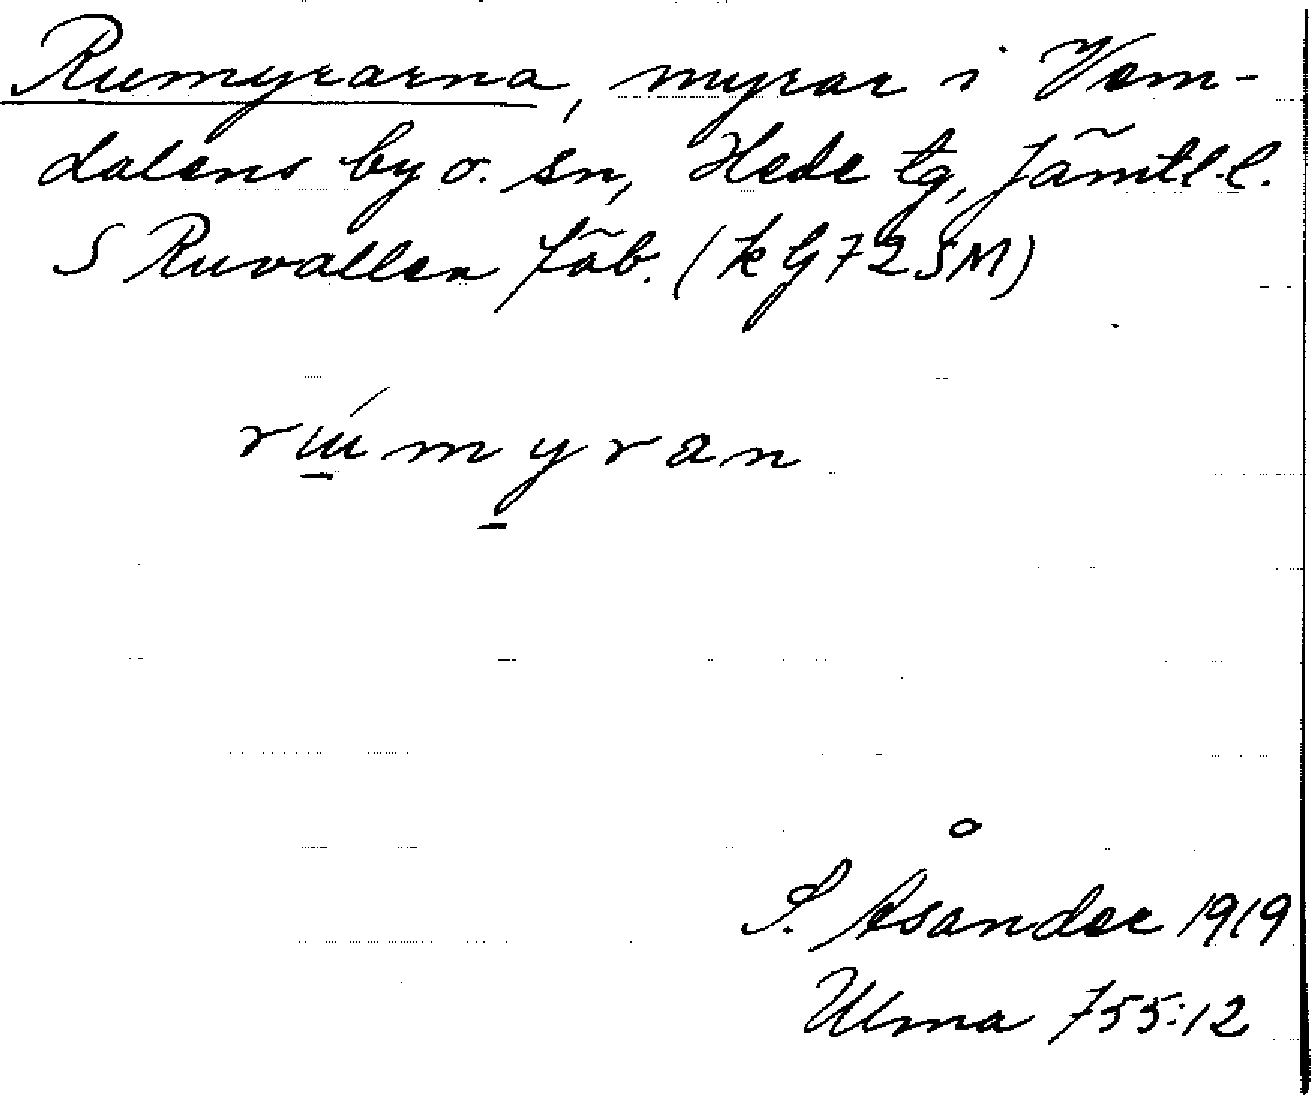 Rumyrarna, myrar i Vem-
dalens by o. sn, Hede tg, Jämtl. l.
S Ruvallen fäb. (k G 72 SM)
rúmyran
S. Åsander 1919
Ulma 755:12